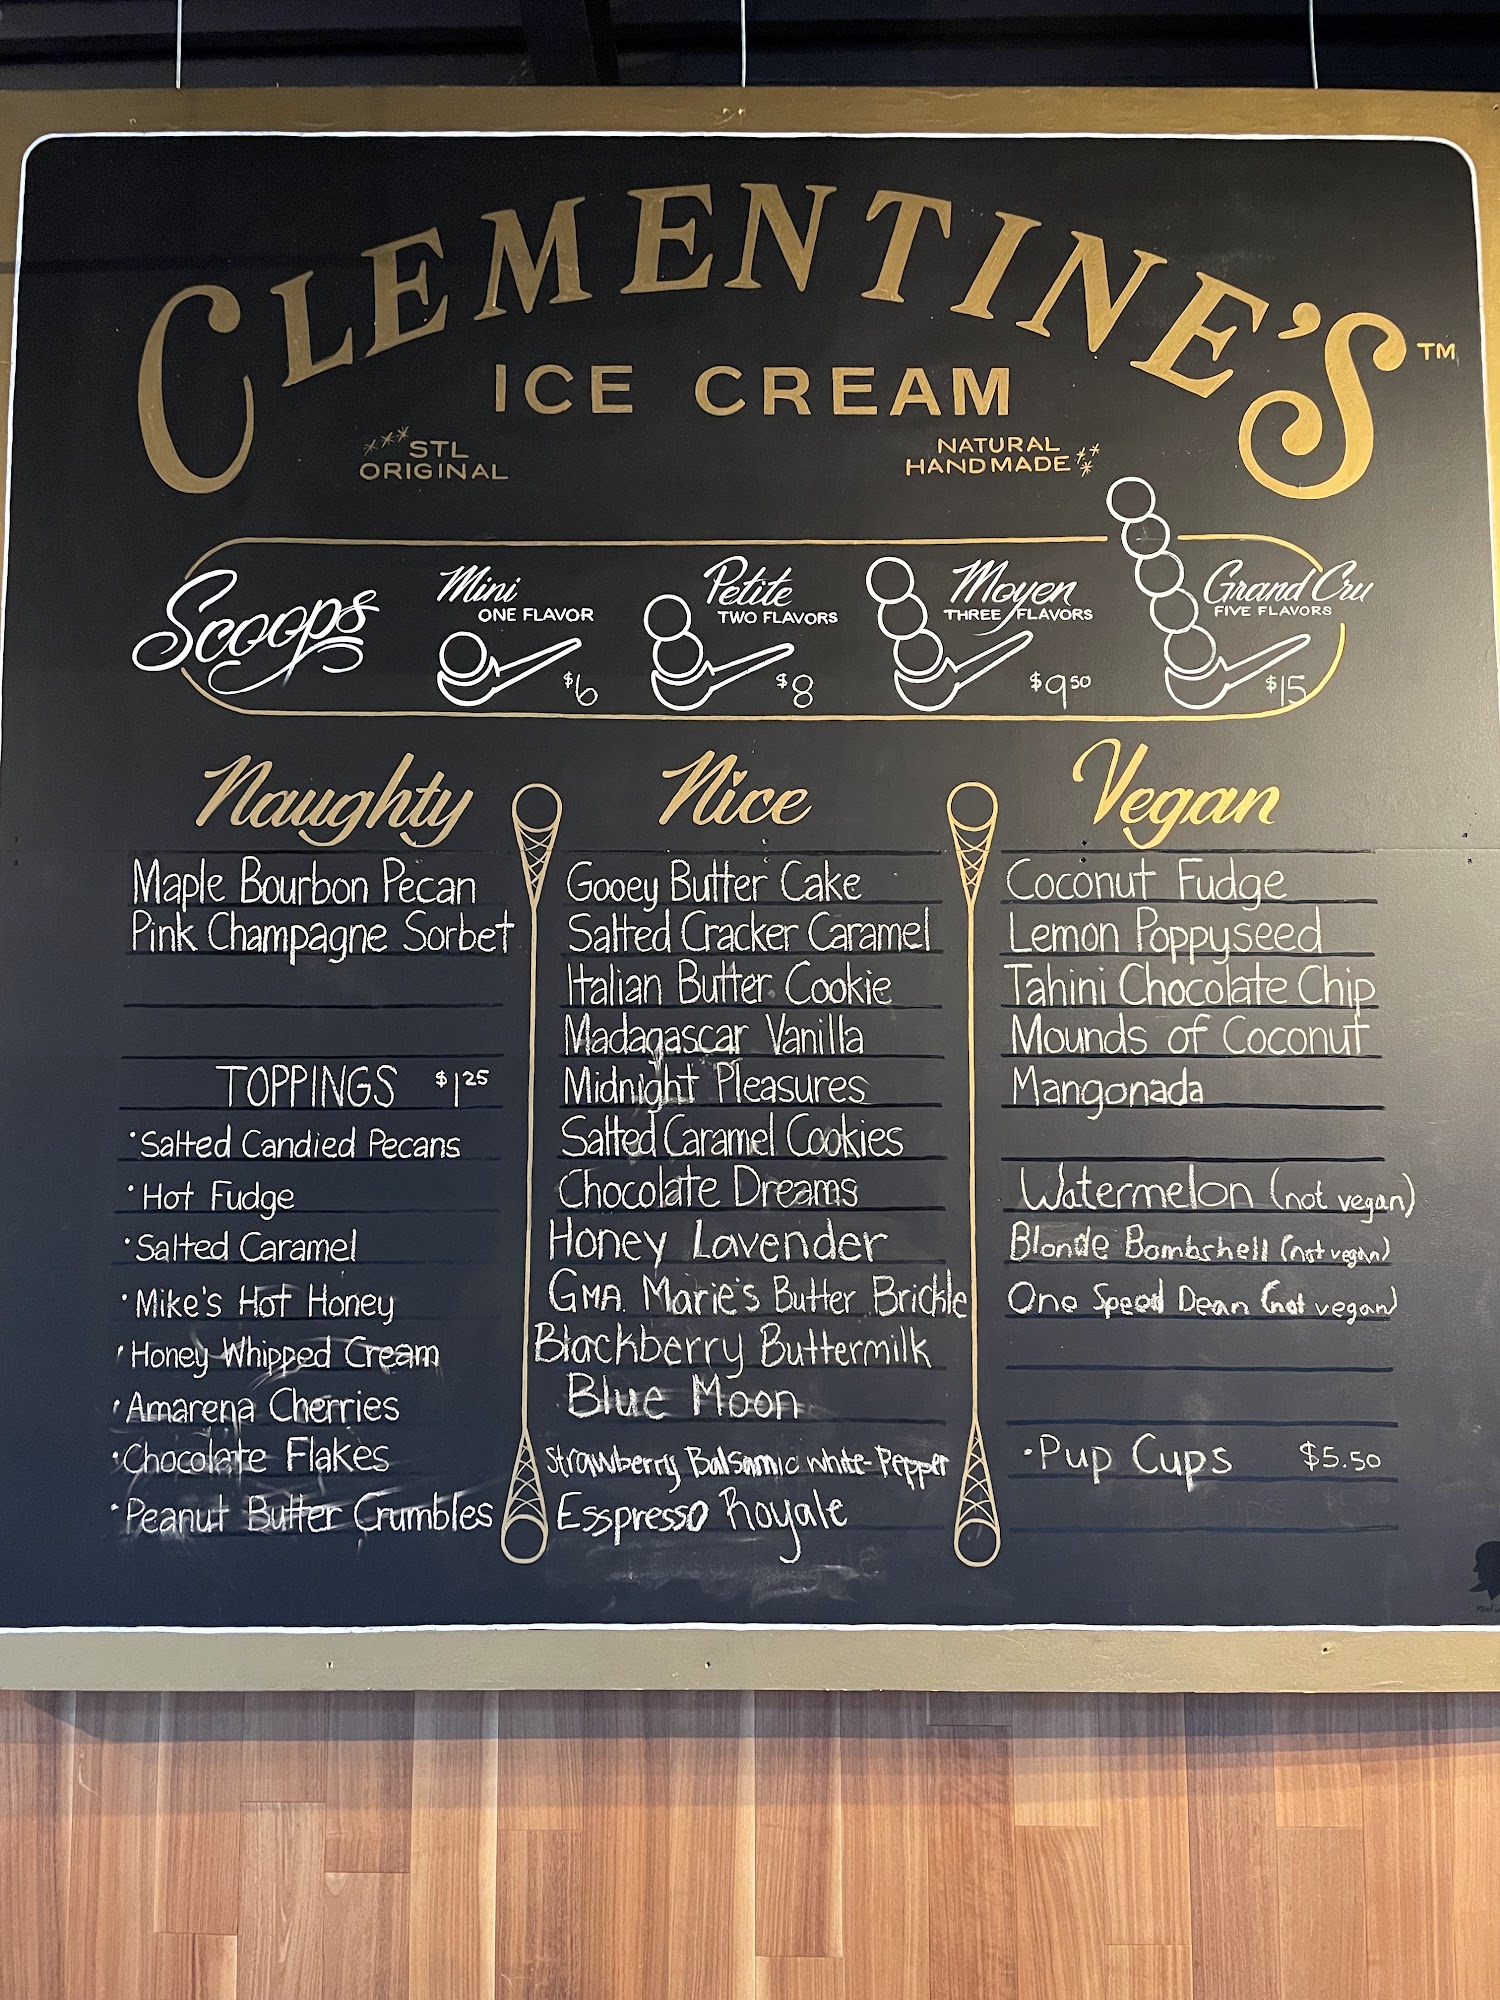 CLEMENTINE'S™
ICE CREAM
STL
ORIGINAL
NATURAL
HANDMADE
Scoops
Mini
ONE FLAVOR
$6
Petite
TWO FLAVORS
$8
Moyen
THREE FLAVORS
$9 50
Grand Cru
FIVE FLAVORS
$15
Naughty
Maple Bourbon Pecan
Pink Champagne Sorbet
TOPPINGS $1 25
·Salted Candied Pecans
·Hot Fudge
·Salted Caramel
·Mike's Hot Honey
·Honey Whipped Cream
·Amarena Cherries
·Chocolate Flakes
·Peanut Butter Crumbles
Nice
Gooey Butter Cake
Salted Cracker Caramel
Italian Butter Cookie
Madagascar Vanilla
Midnight Pleasures
Salted Caramel Cookies
Chocolate Dreams
Honey Lavender
GMA. Marie's Butter Brickle
Blackberry Buttermilk
Blue Moon
Strawberry Balsamic white-Pepper
Esspresso Royale
Vegan
Coconut Fudge
Lemon Poppyseed
Tahini Chocolate Chip
Mounds of Coconut
Mangonada
Watermelon (not vegan)
Blonde Bombshell (not vegan)
One Speed Dean (not vegan)
·Pup Cups $5.50